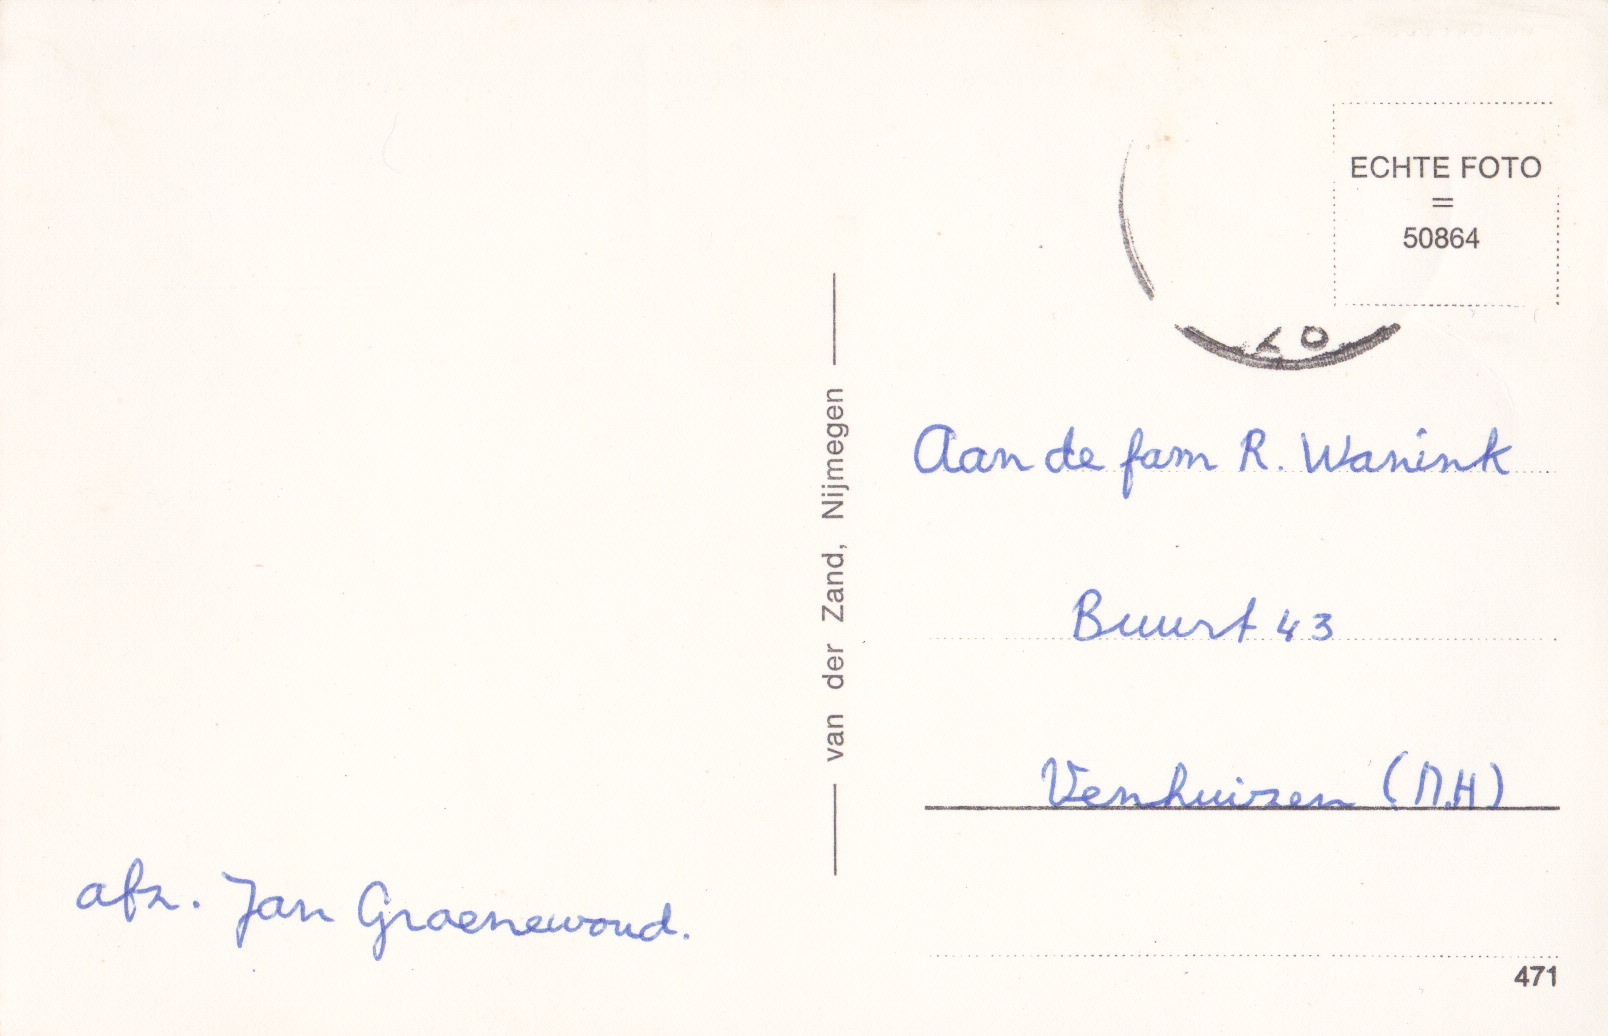 ECHTE FOTO
=
50864
Aan de fam R. Wanink
Buurt 43
Venhuizen (N.H)
afz. Jan Groenewoud.
van der Zand, Nijmegen
471